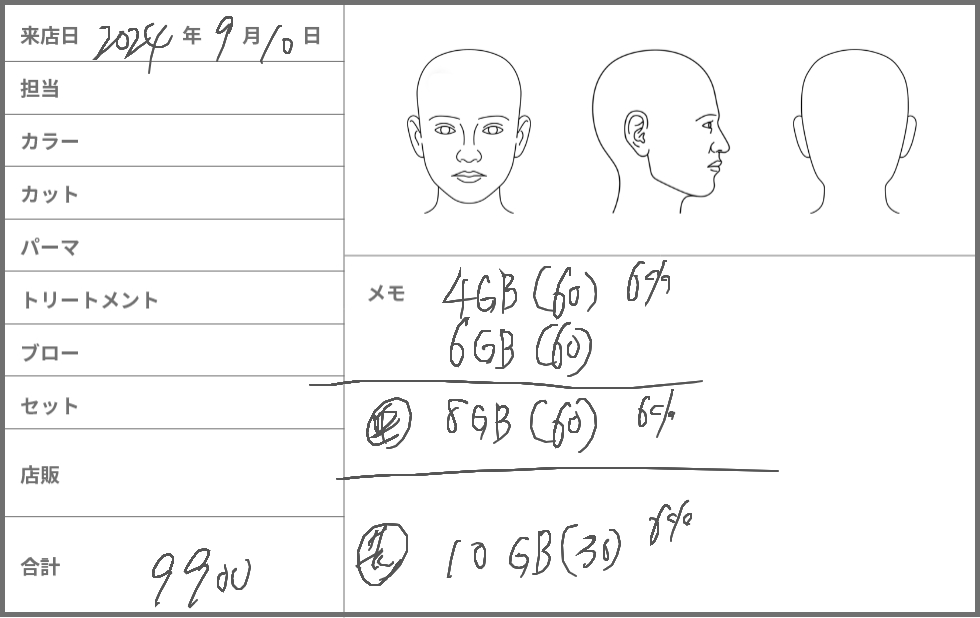 来店日 2024 年 9 月 10 日
担当
カラー
カット
パーマ
トリートメント
ブロー
セット
店販
合計 9900
メモ 4GB (60) 6%
6GB (60)
8GB (60) 6%
10 GB (30)